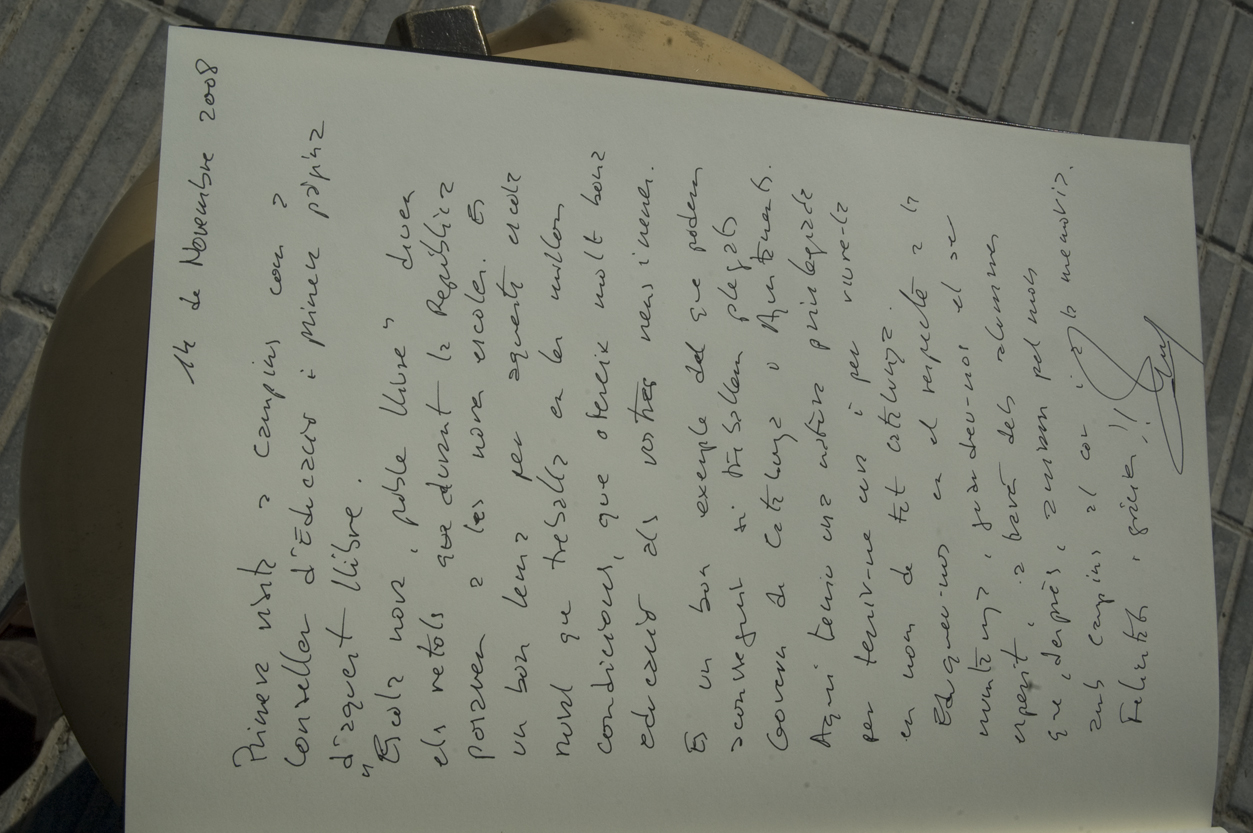 14 de Novembre 2008
Primera visita a Campins com a
Conseller d'Educació i primera pàgina
d'aquest llibre.
"Escola nova, poble lliure" diuen
els rètols que durant la República
posaven a les noves escoles. És
un bon lema per aquesta escola
rural que treballa en les millors
condicions, que ofereix molt bona
educació als vostres nens i nenes.
És un bon exemple del que podem
aconseguir si treballem plegats
Govern de Catalunya i Ajuntaments.
Aquí teniu una natura privilegiada
per servir-ne i per viure-la
en nom de tot Catalunya.
Eduqueu-nos en el respecte a la
muntanya, guardeu-nos el seu
esperit, a través dels alumnes
que, després, aniran pel món
amb Campins al cor i a la memòria.
Felicitats i gràcies!!